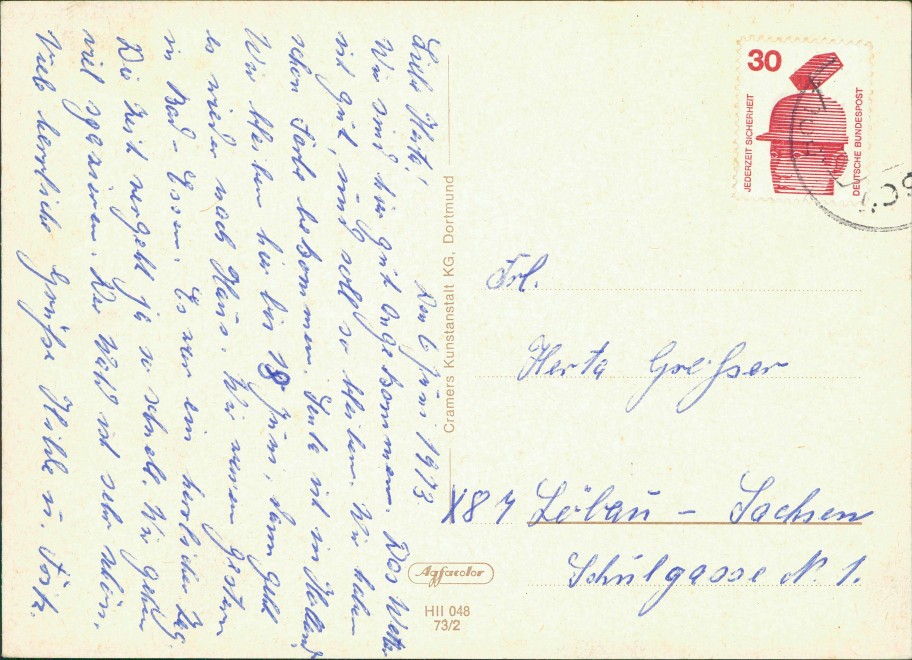 Liebe Herta!
Den 6 Juni 1973.
Wir sind hier gut angekommen. Das Wetter
ist gut, und soll so bleiben. Wir haben
schon Farbe bekommen. Heute ist in Holland
Wir bleiben hier bis 19 Juni, dann geht
es wieder nach Haus. Wir waren gestern
in Bad-Essen. Es war ein herrlicher Tag.
Die Zeit vergeht ja so schnell. Wir gehen
viel spazieren. Der Wald ist sehr schön.
Viele herzliche Grüsse Hilde u. Fritz.
Cramers Kunstanstalt KG, Dortmund
Agfacolor
HII 048
73/2
30
JEDERZEIT SICHERHEIT
DEUTSCHE BUNDESPOST
Frl.
Herta Greisser
X87 Löbau - Sachsen
Schulgasse N. 1.